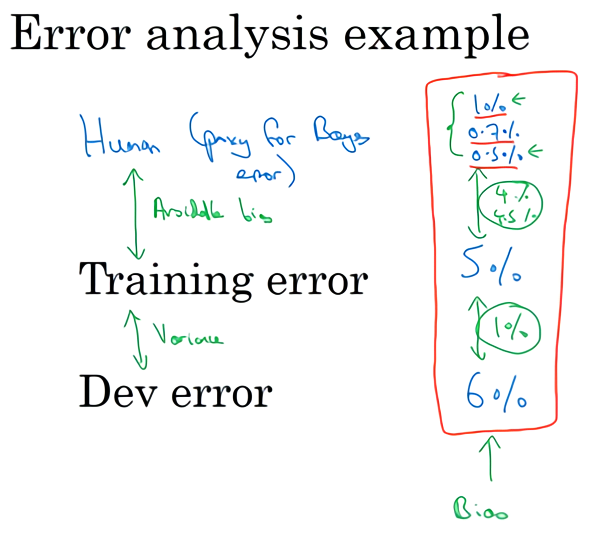 Error analysis example
Human (proxy for Bayes error)
1%
0.7%
0.5%
Avoidable bias
4%
4.5%
Training error
5%
Variance
1%
Dev error
6%
Bias